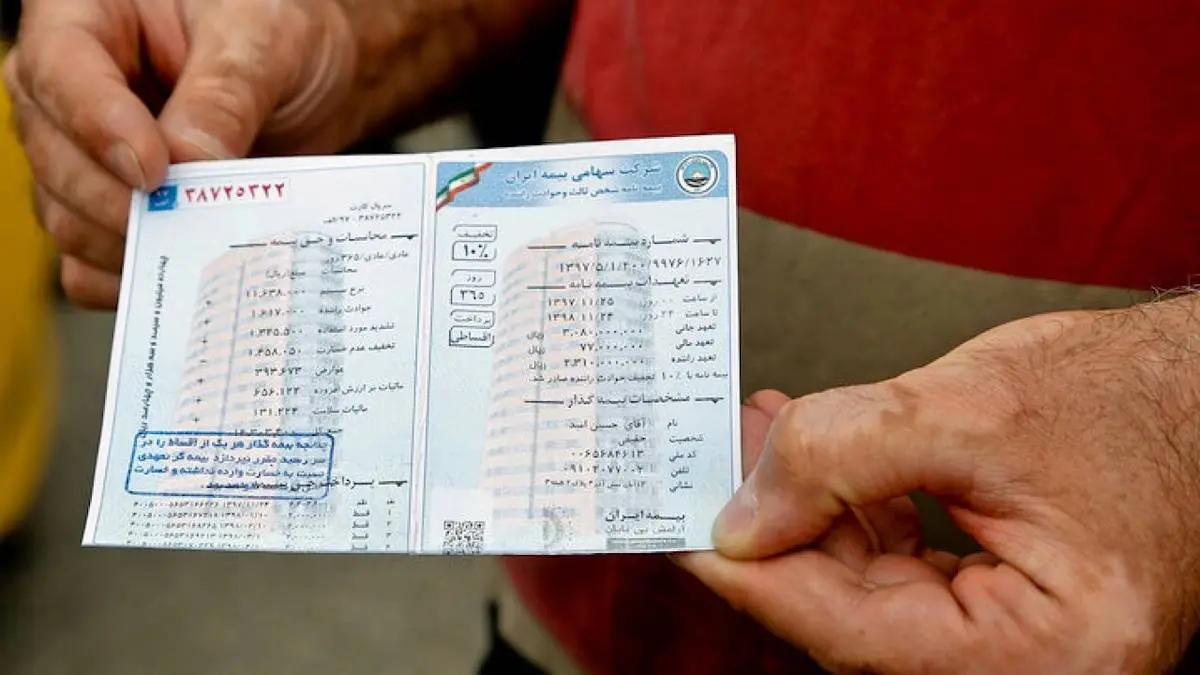 شرکت سهامی بیمه ایران
بیمه نامه شخص ثالث و حوادث راننده
شماره بیمه نامه
۱۳۹۷/۵/۱/۲۰۰/۹۹۷۶/۱۶۲۷
تعهدات بیمه نامه
از ساعت ۰۰ روز: ۱۳۹۷/۱۱/۲۵
تا ساعت ۲۴ روز: ۱۳۹۸/۱۱/۲۴
تعهد جانی ۳،۰۸۰،۰۰۰،۰۰۰ ریال
تعهد مالی ۷۷،۰۰۰،۰۰۰ ریال
تعهد راننده ۲،۳۱۰،۰۰۰،۰۰۰ ریال
بیمه نامه با ۱۰% تخفیف حوادث راننده صادر شد.
مشخصات بیمه گذار
نام آقای حسین امید
شخصیت حقیقی
کد ملی ۰۰۶۵۶۸۴۶۱۳
تلفن ۰۹۱۰۲۰۷۷۰۰۲
نشانی
بیمه ایران
تخفیف
۱۰%
روز
۳۶۵
پرداخت
اقساطی
۳۸۷۲۵۳۲۲
۹۷
الف
سریال کارت
محاسبات و حق بیمه
عادی/عادی/۳۶۵ روز
محاسبات مبلغ(ریال)
نرخ بیمه ۱۱،۶۳۸،۰۰۰
حوادث راننده ۱،۶۱۷،۰۰۰
تشدید مورد استفاده ۱،۳۲۵،۵۰۰
تخفیف عدم خسارت ۱،۴۵۸،۰۵۰
عوارض ۳۹۳،۶۷۳
مالیات بر ارزش افزوده ۶۵۶،۱۲۲
مالیات سلامت ۱۳۱،۲۲۴
چهارده میلیون و سیصد و سه هزار و چهارصد ریال
چنانچه بیمه گذار هر یک از اقساط را در
سر رسید مقرر نپردازد بیمه گر تعهدی
نسبت به خسارت وارده نداشته و خسارت